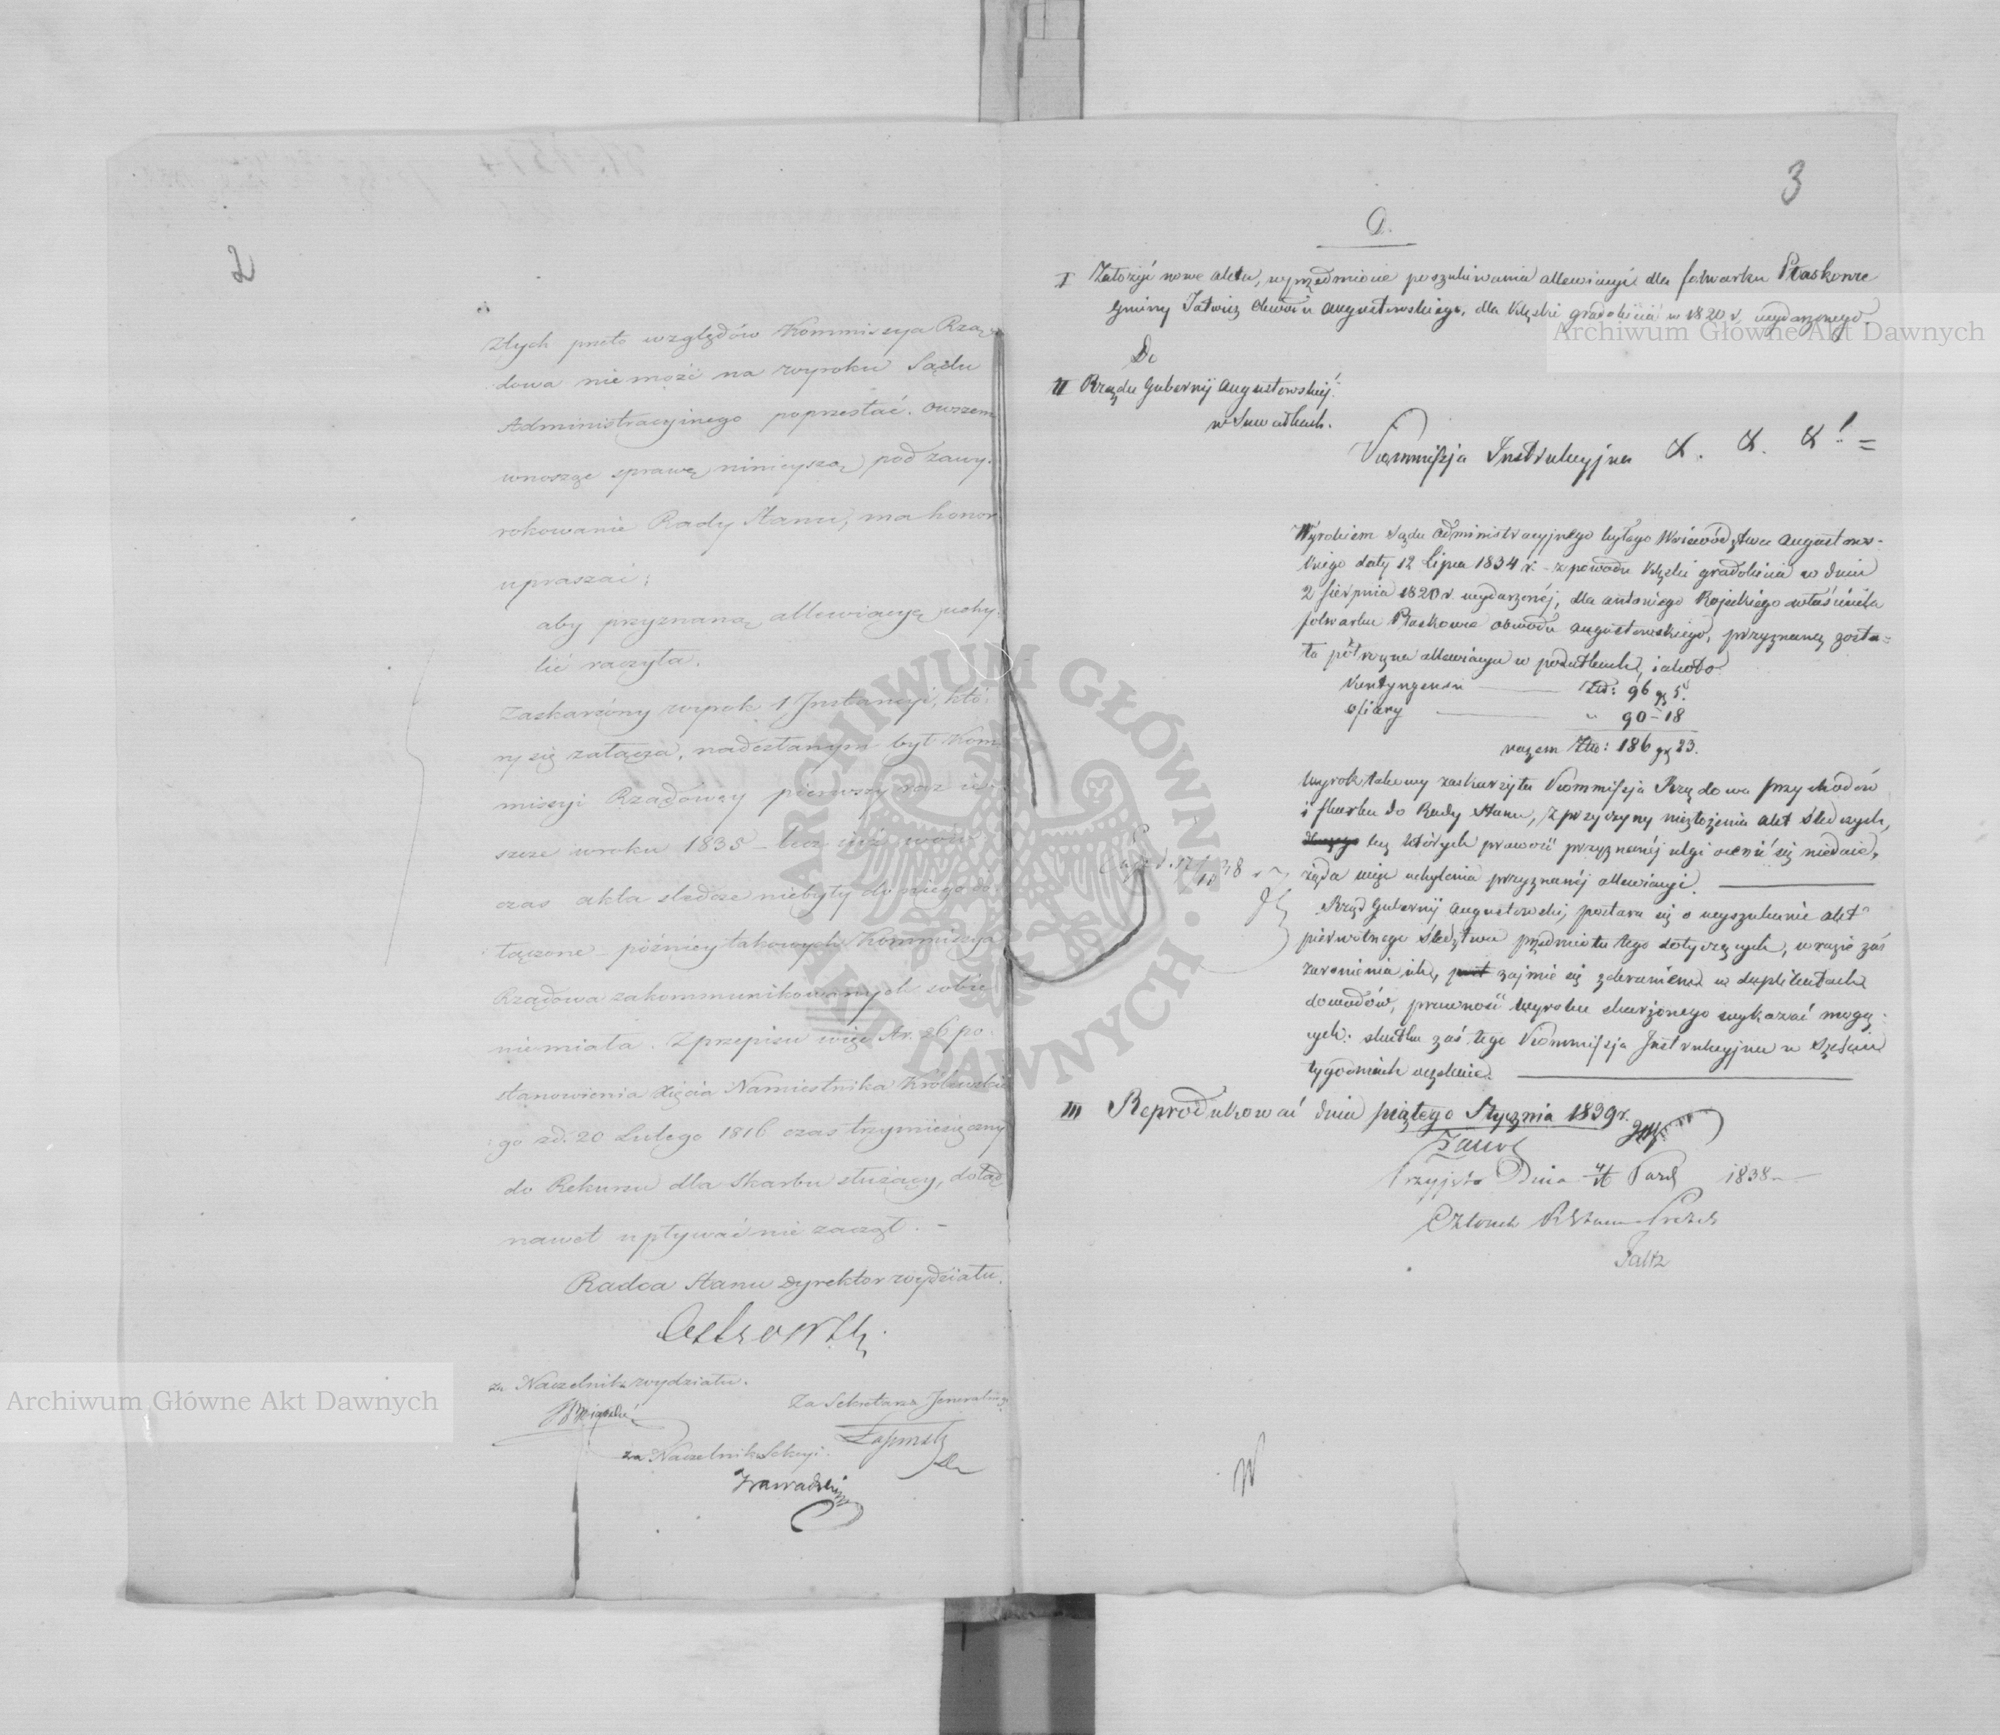 2
Ztych prźeto względów Kommissya Rzą
dowa niemoże na wyroku Sądu
Administracyjnego poprzestać. owszem
wnosząc sprawę ninieyszą pod zawy-
rokowanie Rady Stanu, ma honor
upraszać;
aby przyznaną allewiacyą uchy-
lić raczyła.
Zaskarżony wyrok 1 Instancyi, któ-
ry się załącza, nadesłanym był Kom-
missyi Rządowey pierwszy raz ie-
szcze w roku 1835 – lecz iuż wów
czas akta śledcze niebyły do niego do
łączone – późniey takowych Kommissya
Rządowa zakommunikowanych sobie
niemiała. Z przepisu więc Ar. 26 po-
stanowienia Xięcia Namiestnika Królewskie
go z d. 20 Lutego 1816 czas trzymiesięczny
do Rekursu dla Skarbu służący, dotąd
nawet upływać nie zaczął. –
Radca Stanu Dyrektor wydziału.
za Naczelnika wydziału.
Za Sekretarza Jeneralnego
za Naczelnika Sekcyi.
3
D.
I Założyć nowe akta, w przedmiocie poszukiwania allewiacyi dla folwarku Ptaskowce
Gminy Jatwiez obwodu Augustowskiego, dla klęski gradobicia w 1820 r. wydarzonego
Do
II Rządu Gubernij Augustowskiej
w Suwałkach.
Kommissja Instrukcyjna & . & . & !. =
Wyrokiem Sądu Administracyjnego byłego Województwa Augustows-
kiego daty 12 Lipca 1834 r. – z powodu klęski gradobicia w dniu
2 Sierpnia 1820 r. wydarzonéj, dla Antoniego Rojeckiego właściciela
folwarku Ptaskowce obwodu Augustowskiego, przyznaną zosta-
ła półroczna allewiacya w podatkach, jakoto
Kontyngensu Złt: 96 gr 5.
ofiary „ 90 – 18
razem Złt: 186 gr 23.
Wyrok takowy zaskarżyła Kommissja Rządowa przychodów
i skarbu do Rady Stanu, z przyczyny niezłożenia akt śledczych,
bez których prawość przyznanéj ulgi ocenić się niedaie,
żąda więc uchylenia przyznanéj allewiacyi.
Rząd Gubernij Augustowski, postara się o wyszukanie akt
pierwotnego śledztwa przedmiotu tego dotyczących, w razie zaś
zaronienia ich, zajmie się zebraniem w duplikatach
dowodów, prawność wyroku skarżonego wykazać mogą-
cych: skutku zaś tego Kommissja Instrukcyjna w sześciu
tygodniach oczekuie.
III Reprodukować dnia piątego Stycznia 1839 r.
Przyjęto Dnia Paźd 1838
Członek Rady Stanu Prezes
Faltz
Archiwum Główne Akt Dawnych
Archiwum Główne Akt Dawnych
ARCHIWUM GŁÓWNE AKT DAWNYCH